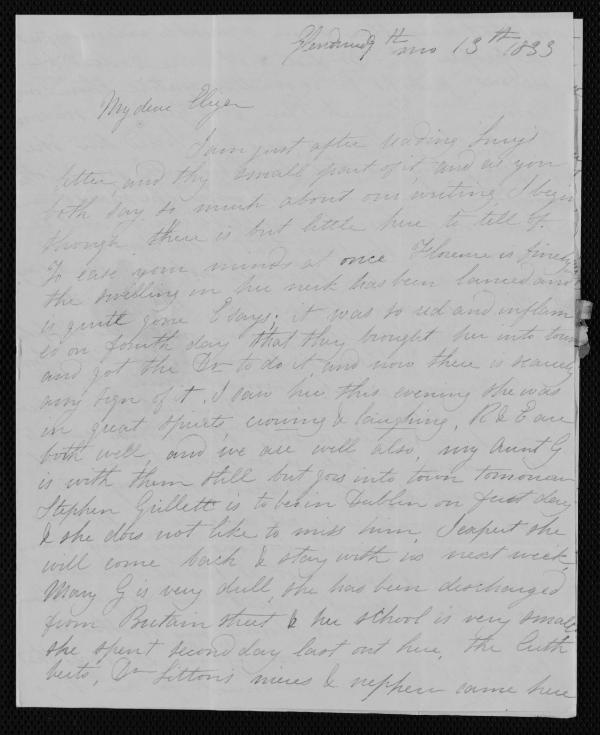 Glendruid 9th mo 13th 1833
My dear Eliza
I am just after reading Lucy's
letter, and thy small part of it, and as you
both say so much about our writing, I begin
though there is but little here to tell of.
To ease your minds at once Florence is finely
the swelling in her neck has been lanced and
is quite gone E says; it was so red and inflam
ed on fourth day that they brought her into town
and got the Dr to do it, and now there is scarcely
any sign of it. I saw her this evening she was
in great spirits crowing & laughing, R & E are
both well, and we are well also, my Aunt G
is with them still but goes into town tomorrow
Stephen Grillett is to be in Dublin on first day
& she does not like to miss him, I expect she
will come back & stay with us next week,
Mary G is very dull, she has been discharged
from Britain street & her school is very small
she spent second day last out here, the Cuth
berts, Dr Litton's nieces & nephew came here